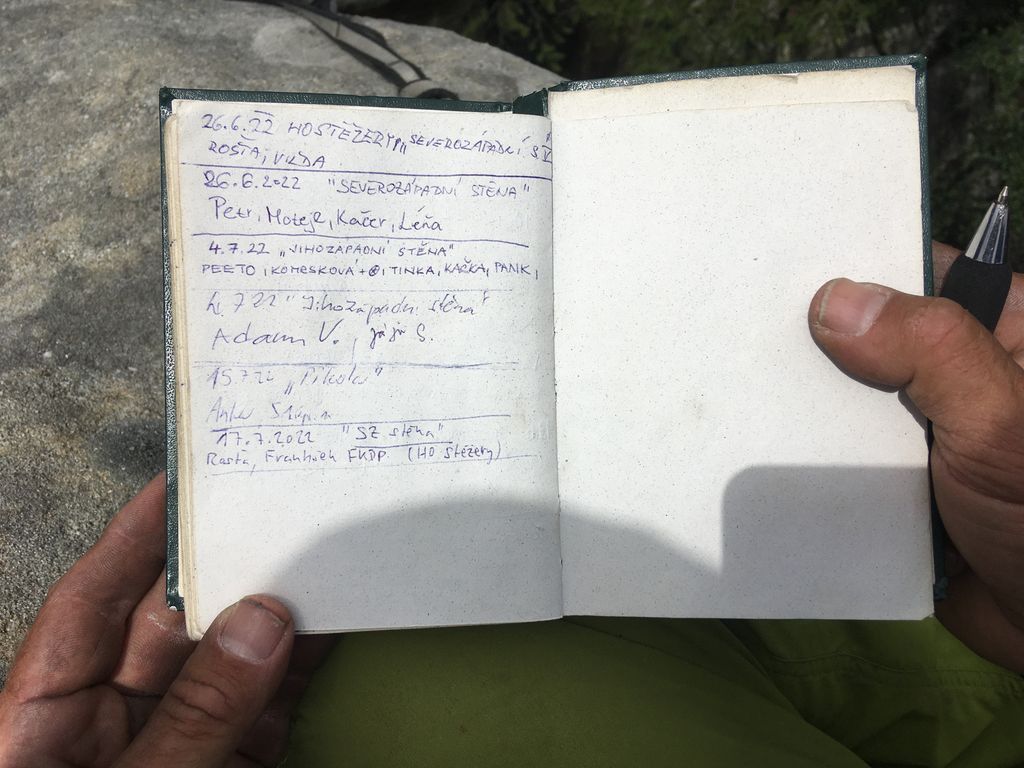 26.6.22 HO STĚŽERY „SEVEROZÁPADNÍ
ROSŤA,
26.6.2022 "SEVEROZÁPADNÍ STĚNA"
Petr, Kačer, Léňa
4.7.22 „JIHOZÁPADNÍ STĚNA"
PEETO, KOMESKOVÁ + TINKA, KAČKA, PANK,
4.7 22 "Jihozápadní stěna"
Adam V., S.
15.7.22
17.7.2022 "SZ stěna"
Rosťa, František FKDP. (HO Stěžery)